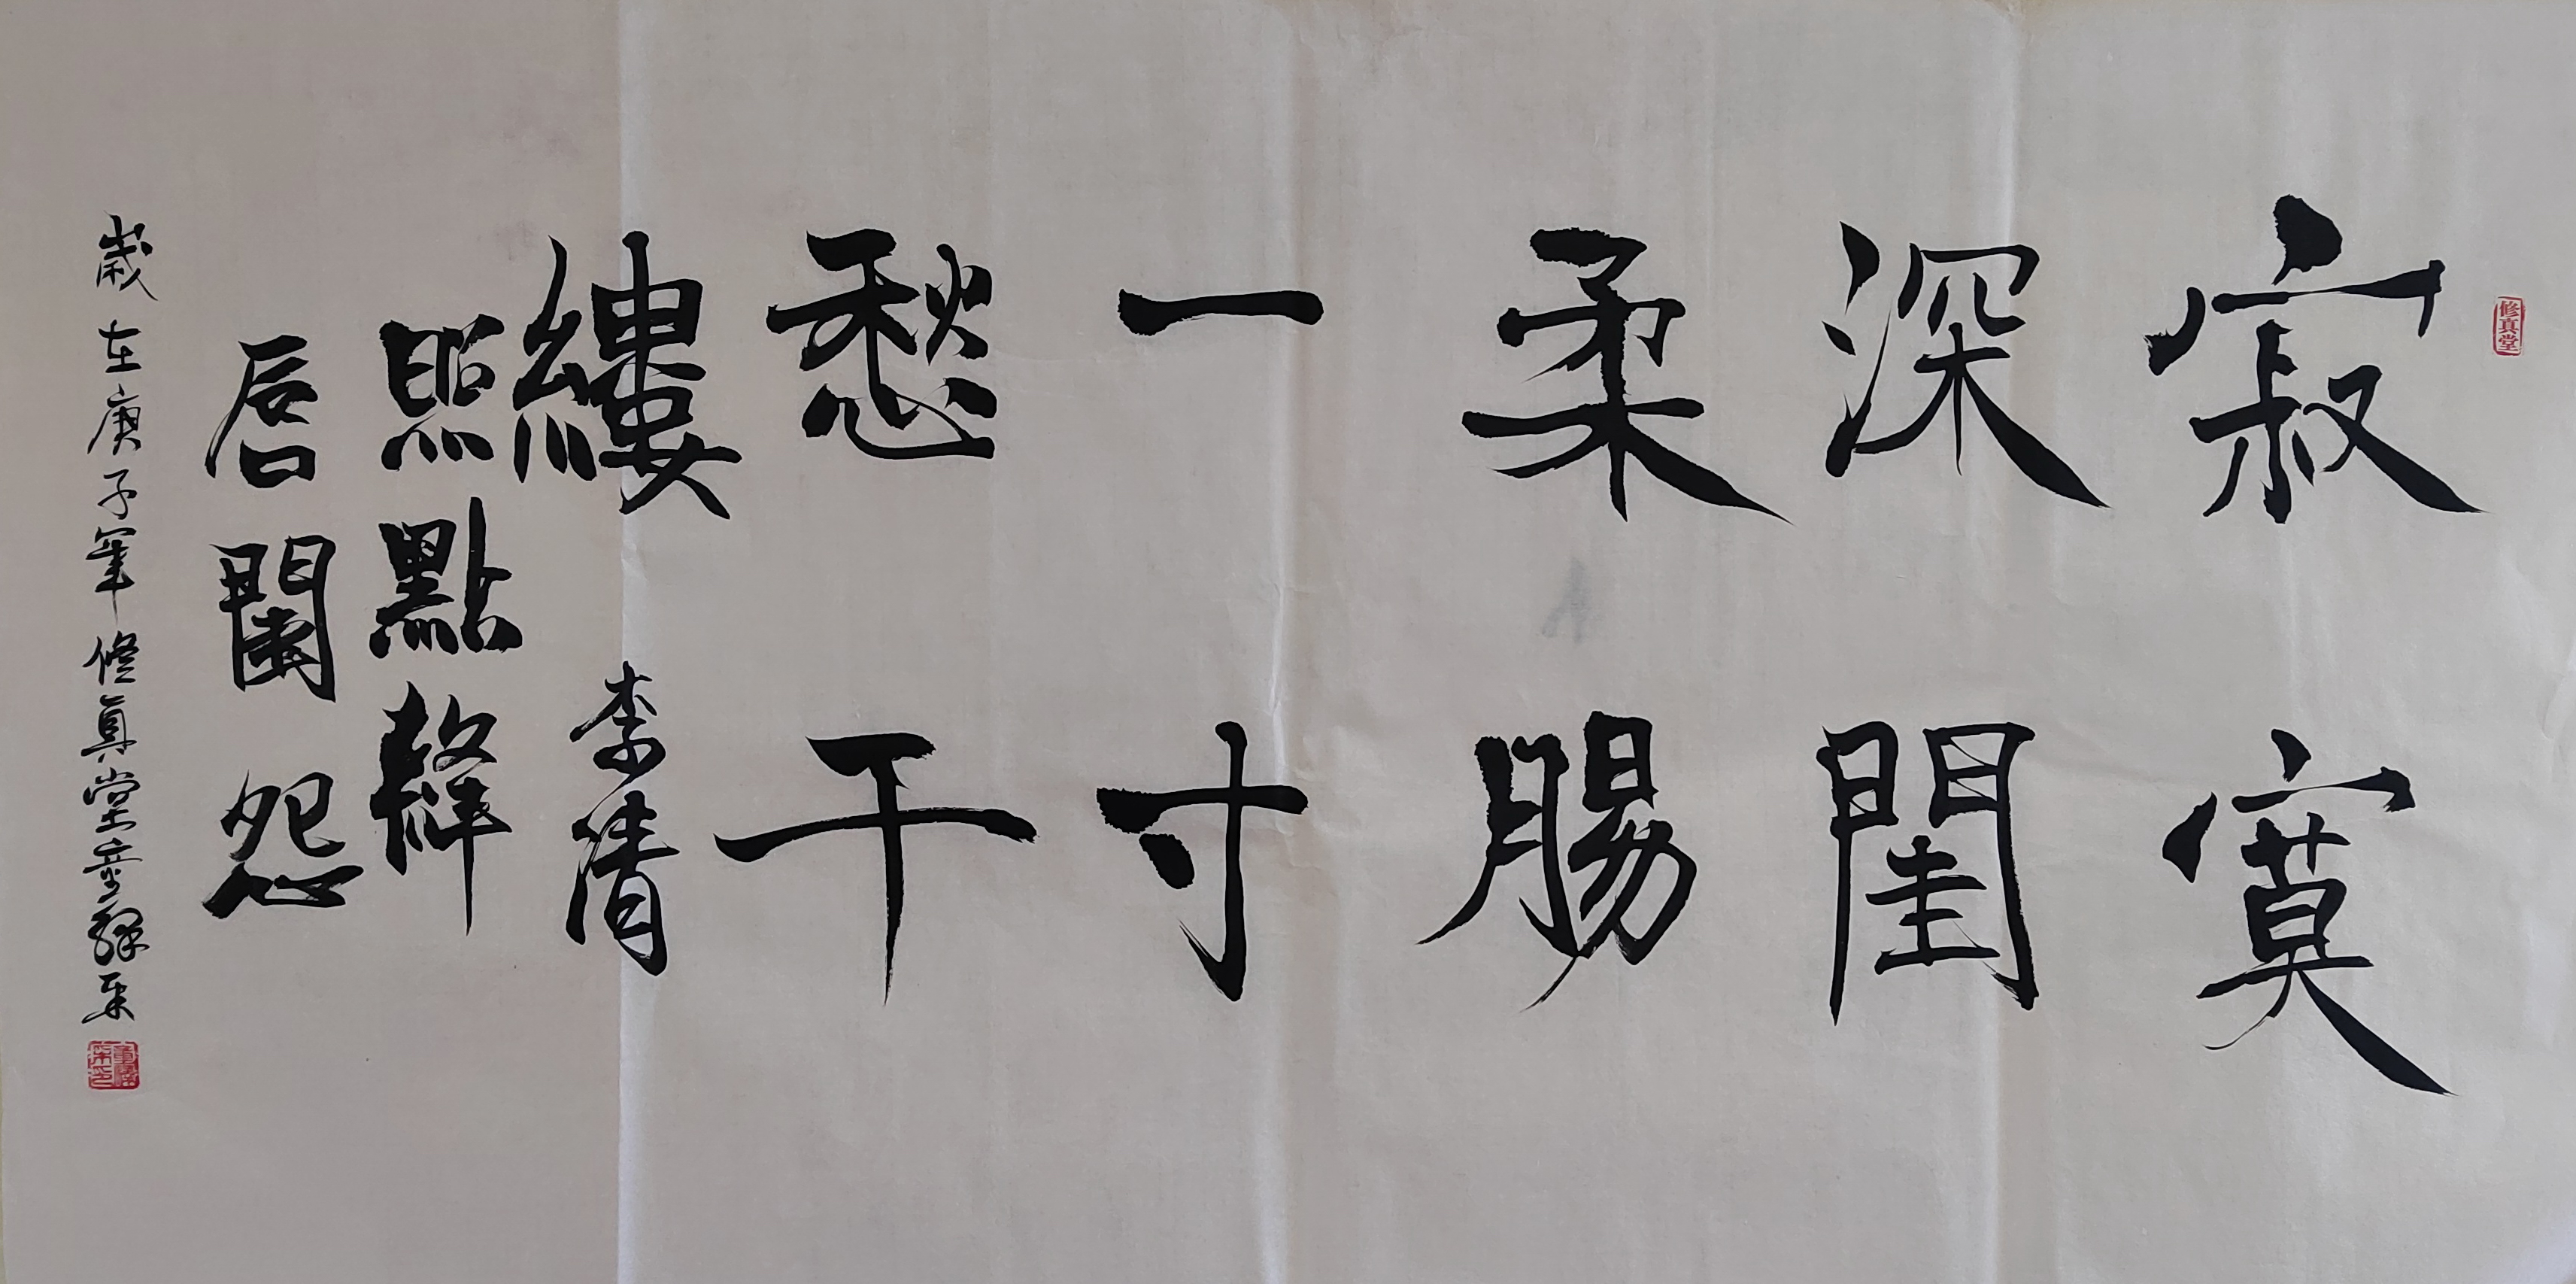 修真堂
寂寞
深閨
柔腸
一寸
愁千
縷 李清
照點絳
唇閨怨
歲在庚子年修真堂